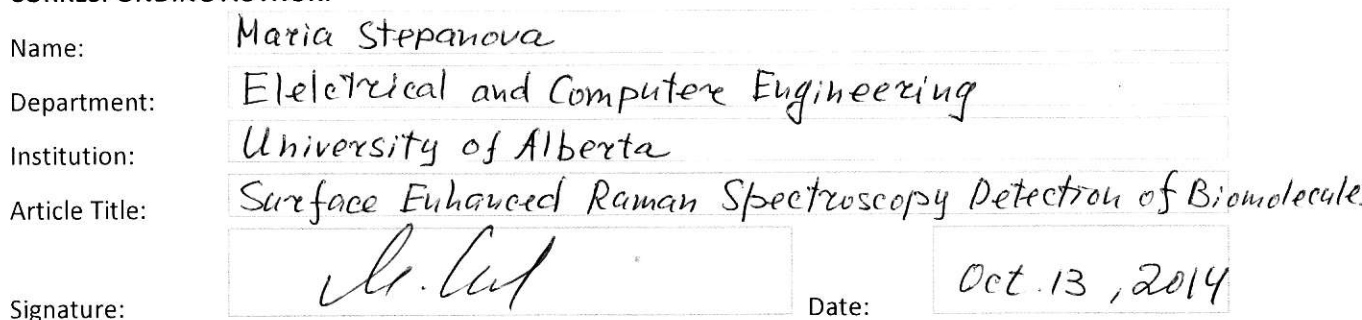 CORRESPONDING AUTHOR:
Name: Maria Stepanova
Department: Elelctrical and Computere Engineering
Institution: University of Alberta
Article Title: Surface Enhanced Raman Spectroscopy Detection of Biomolecule
Signature: Date: Oct. 13, 2014